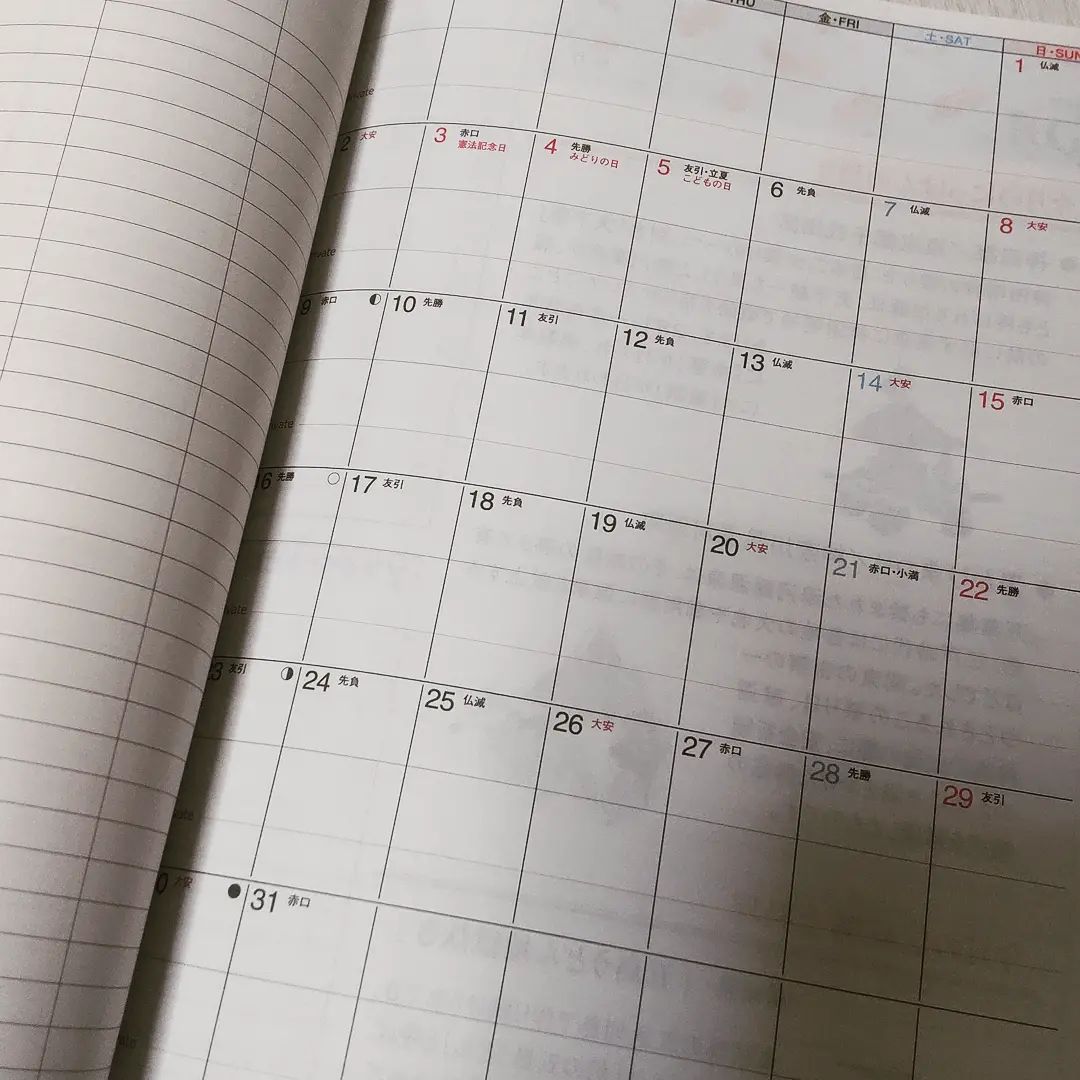 THU
金・FRI
土・SAT
日・SUN
1 仏滅
2 大安
3 赤口
憲法記念日
4 先勝
みどりの日
5 友引・立夏
こどもの日
6 先負
7 仏滅
8 大安
9 赤口
10 先勝
11 友引
12 先負
13 仏滅
14 大安
15 赤口
16 先勝
17 友引
18 先負
19 仏滅
20 大安
21 赤口・小満
22 先勝
23 友引
24 先負
25 仏滅
26 大安
27 赤口
28 先勝
29 友引
大安
31 赤口